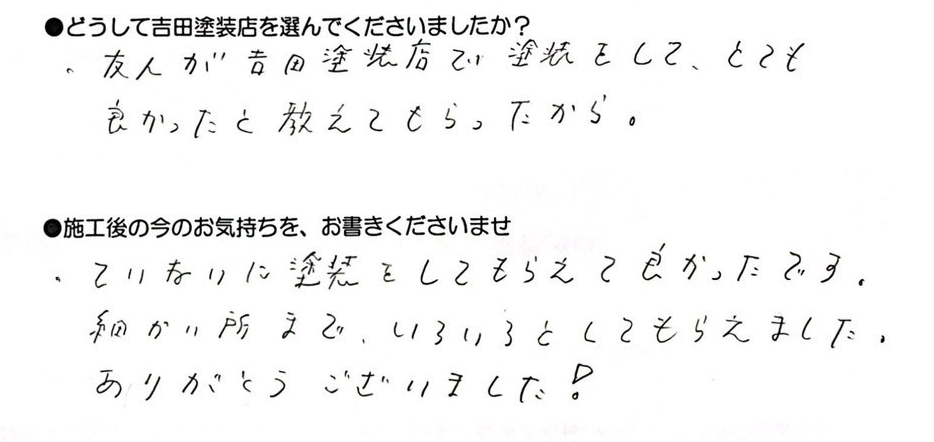 ●どうして吉田塗装店を選んでくださいましたか?
・友人が吉田塗装店で塗装をして、とても
良かったと教えてもらったから。
●施工後の今のお気持ちを、お書きくださいませ
・ていねいに塗装をしてもらえて良かったです。
細かい所まで、いろいろとしてもらえました。
ありがとうございました!